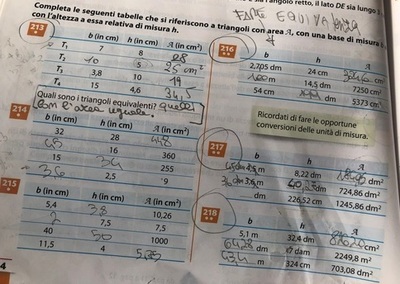 retto, il lato DE sia lungo
Completa le seguenti tabelle che si riferiscono a triangoli con area A, con una base di misura
con l'altezza a essa relativa di misura h.
FARE EQUIVALENZA
213
b (in cm) h (in cm) A (in cm²)
T₁ 7 8 28
T₂ 10 5 25 cm²
T₃ 3,8 10 19
T₄ 15 4,6 34,5
Quali sono i triangoli equivalenti? quelli
con l'area uguale.
214
b (in cm) h (in cm) A (in cm²)
32 28 448
45 16 360
15 34 255
2,5 9
215
b (in cm) h (in cm) A (in cm²)
5,4 3,8 10,26
2 7,5 7,5
40 50 1000
11,5 4
4
216
b h A
2,705 dm 24 cm
m 14,5 dm 7250 cm²
54 cm dm 5373 cm²
Ricordati di fare le opportune
conversioni delle unità di misura.
217
b h A
8,22 dm dm²
dm 724,86 dm²
dm 226,52 cm 1245,86 dm²
218
b h A
5,1 m 32,4 dm cm²
dm 7 dam 2249,8 m²
43,4 m 324 cm 703,08 dm²